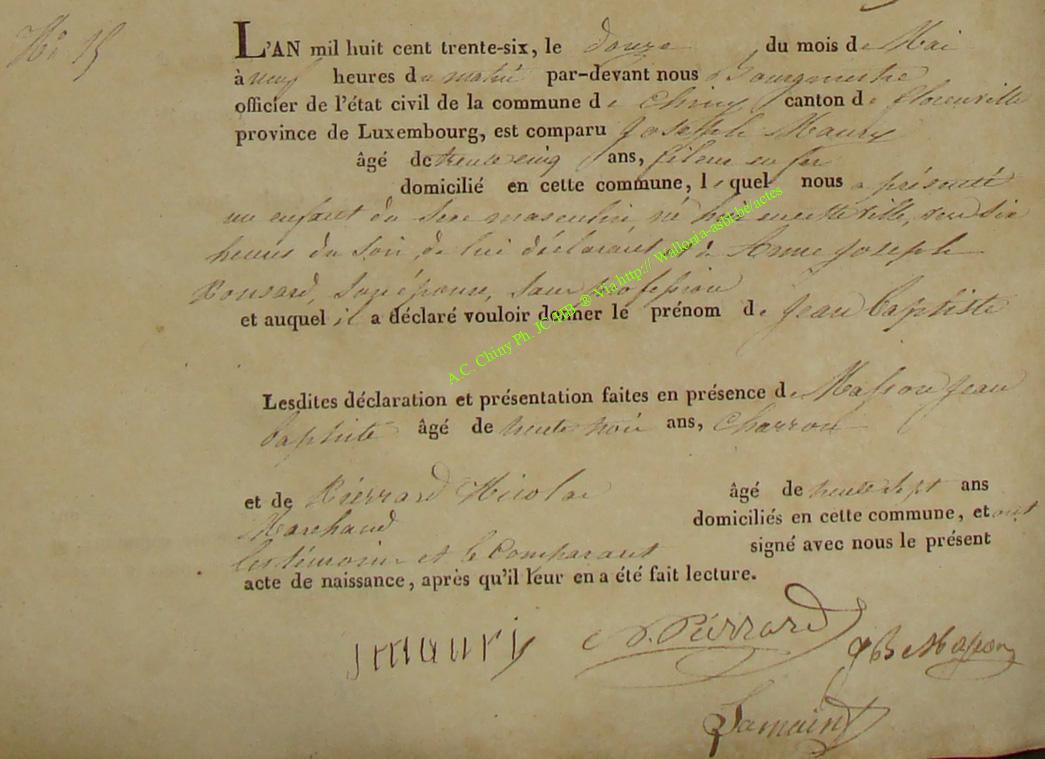 No 15
L'AN mil huit cent trente-six, le douze du mois de Mai
à neuf heures du matin par-devant nous Bourgmestre
officier de l'état civil de la commune de Chiny canton de florenville
province de Luxembourg, est comparu Joseph Maury
âgé de trente cinq ans, fileur en fer
domicilié en cette commune, lequel nous a présenté
un enfant du sexe masculin, né hier en cette ville, à six
heures du soir, de lui déclarant et de Anne Joseph
Ronsard, son épouse, sans profession
et auquel il a déclaré vouloir donner le prénom de Jean Baptiste
Lesdites déclaration et présentation faites en présence de Masson Jean
baptiste âgé de trente trois ans, Charron
et de Pierrard Nicolas âgé de trente sept ans
Marchand domiciliés en cette commune, et ont
les témoins et le Comparant signé avec nous le présent
acte de naissance, après qu'il leur en a été fait lecture.
jmaury N. Pierrard JB Masson
Lamain
A.C. Chiny Ph. JC ® Via http:// Wallonia-asbl.be/actes